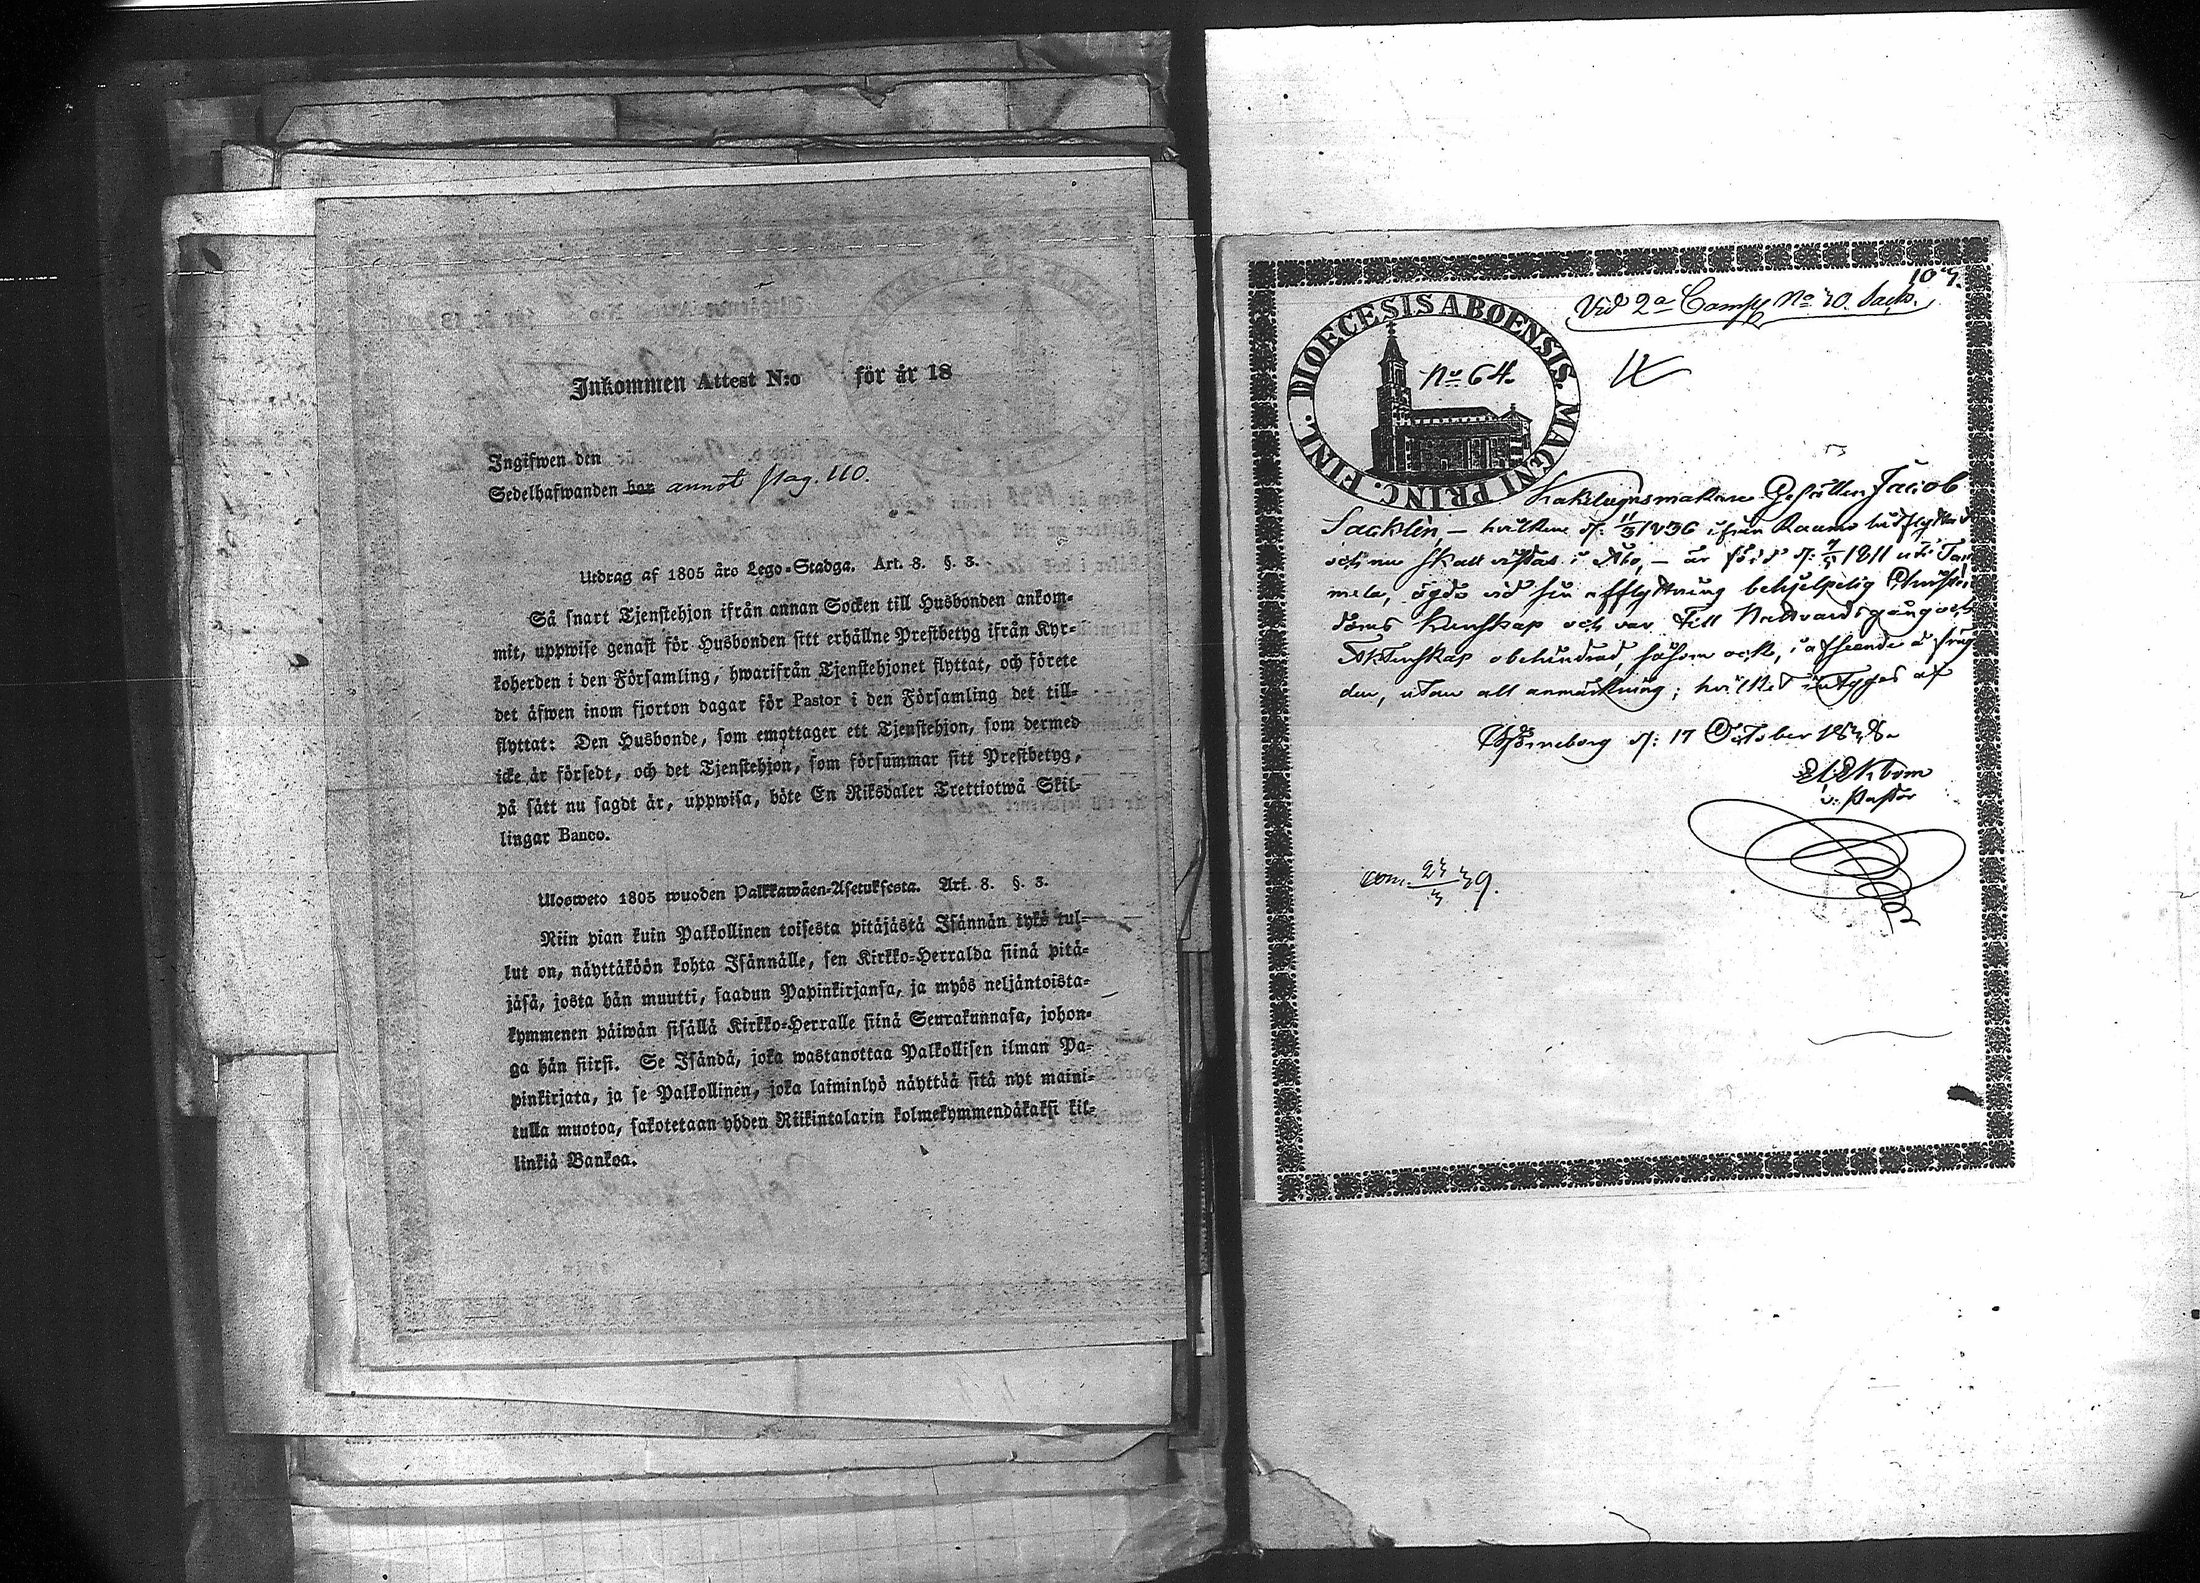 Inkommen Attest N:o för år 18
Ingifwen den
Sedelhafwanden har annot pag. 110.
Utdrag af 1805 års Lego-Stadga. Art. 8. §. 3.
Så snart Tjenstehjon ifrån annan Socken till Husbonden ankom-
mit, uppwise genast för Husbonden sitt erhållne Prestbetyg ifrån Kyr-
koherden i den Församling, hwarifrån Tjenstehjonet flyttat, och förete
det äfwen inom fjorton dagar för Pastor i den Församling det till-
flyttat: Den Husbonde, som emottager ett Tjenstehjon, som dermed
icke är försedt, och det Tjenstehjon, som försummar sitt Prestbetyg,
på sätt nu sagdt är, uppwisa, böte En Riksdaler Trettiotwå Skil-
lingar Banco.
Ulosweto 1805 wuoden Palkkawäen-Asetuksesta. Art. 8. §. 3.
Niin pian kuin Palkollinen toisesta pitäjästä Isännän tykö tul-
lut on, näyttäköön kohta Isännälle, sen Kirkko-Herralda siinä pitä-
jäsä, josta hän muutti, saadun Papinkirjansa, ja myös neljäntoista-
kymmenen päiwän sisällä Kirkko-Herralle siinä Seurakunnasa, johon-
ga hän siirsi. Se Isändä, joka wastanottaa Palkollisen ilman Pa-
pinkirjata, ja se Palkollinen, joka laiminlyö näyttää sitä nyt maini-
tulla muotoa, sakotetaan yhden Riikintalarin kolmekymmendäkaksi kil-
linkiä Bankoa.
107.
Vid 2a Comp No 70. Sack.
DIOECESIS ABOENSIS. MAGNI PRINC. FINL.
No 64.
Kakelugnsmakare Gesällen Jacob
Sacklén, – hvilken d. 11/3 1836 ifrån Raumo hitflyttad
och nu skall vistas i Åbo, – är född d. 1811 uti Tam
mela, ägde vid sin afflyttning behjelpelig Christen
doms kunskap och var till Nattvardsgång och
Äktenskap obehindrad, såsom ock, i afseende å fräg
den, utan all anmärkning; hvilket intygas af
Björneborg d. 17 October 1838.
Ekbom
v. Pastor
39.